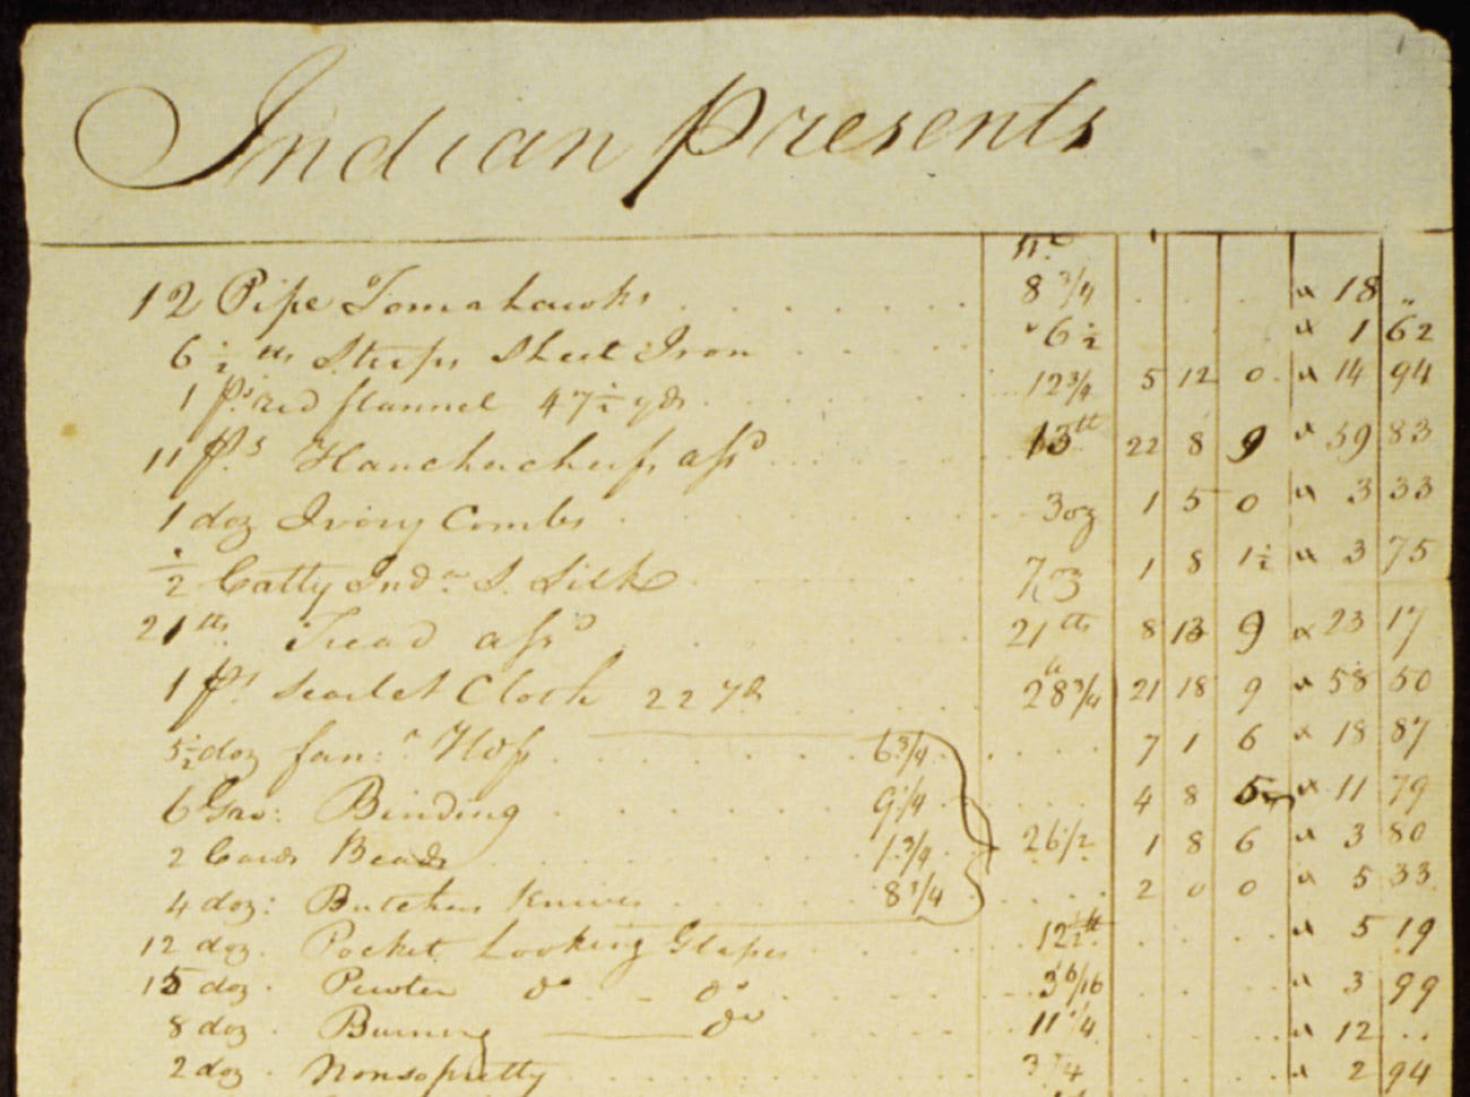 Indian Presents
12 Pipe Tomahawks 8 3/4 " 18 "
6 1/2 lbs Strips Sheet Iron " 6 1/2 " 1 62
1 ps. red flannel 47 1/2 yds 12 3/4 5 12 0 " 14 94
11 ps. Hanckucheifs assd 13 lb 22 8 9 " 59 83
1 doz Ivory Combs 3 oz 1 5 0 " 3 33
1/2 Catty Inda. S. Silk 7 oz 1 8 1 1/2 " 3 75
21 lbs. Tread assd 21 lbs 8 13 9 " 23 17
1 ps. Scarlet Cloth 22 yds 28 3/4 21 18 9 " 58 50
5 1/2 doz fan: Hdfs 6 3/4 7 1 6 " 18 87
6 Gro: Binding 9 1/4 4 8 " 11 79
2 Cards Beads 1 3/4 26 1/2 1 8 6 " 3 80
4 doz: Butcher Knives 8 3/4 2 0 0 " 5 33
12 doz. Pocket Looking Glasses 12 1/2 lb " 5 19
15 doz. Pewter do do 3 6/16 " 3 99
8 doz. Burning do 11 1/4 " 12 ..
2 doz. Nonsopretty 3 1/4 " 2 94